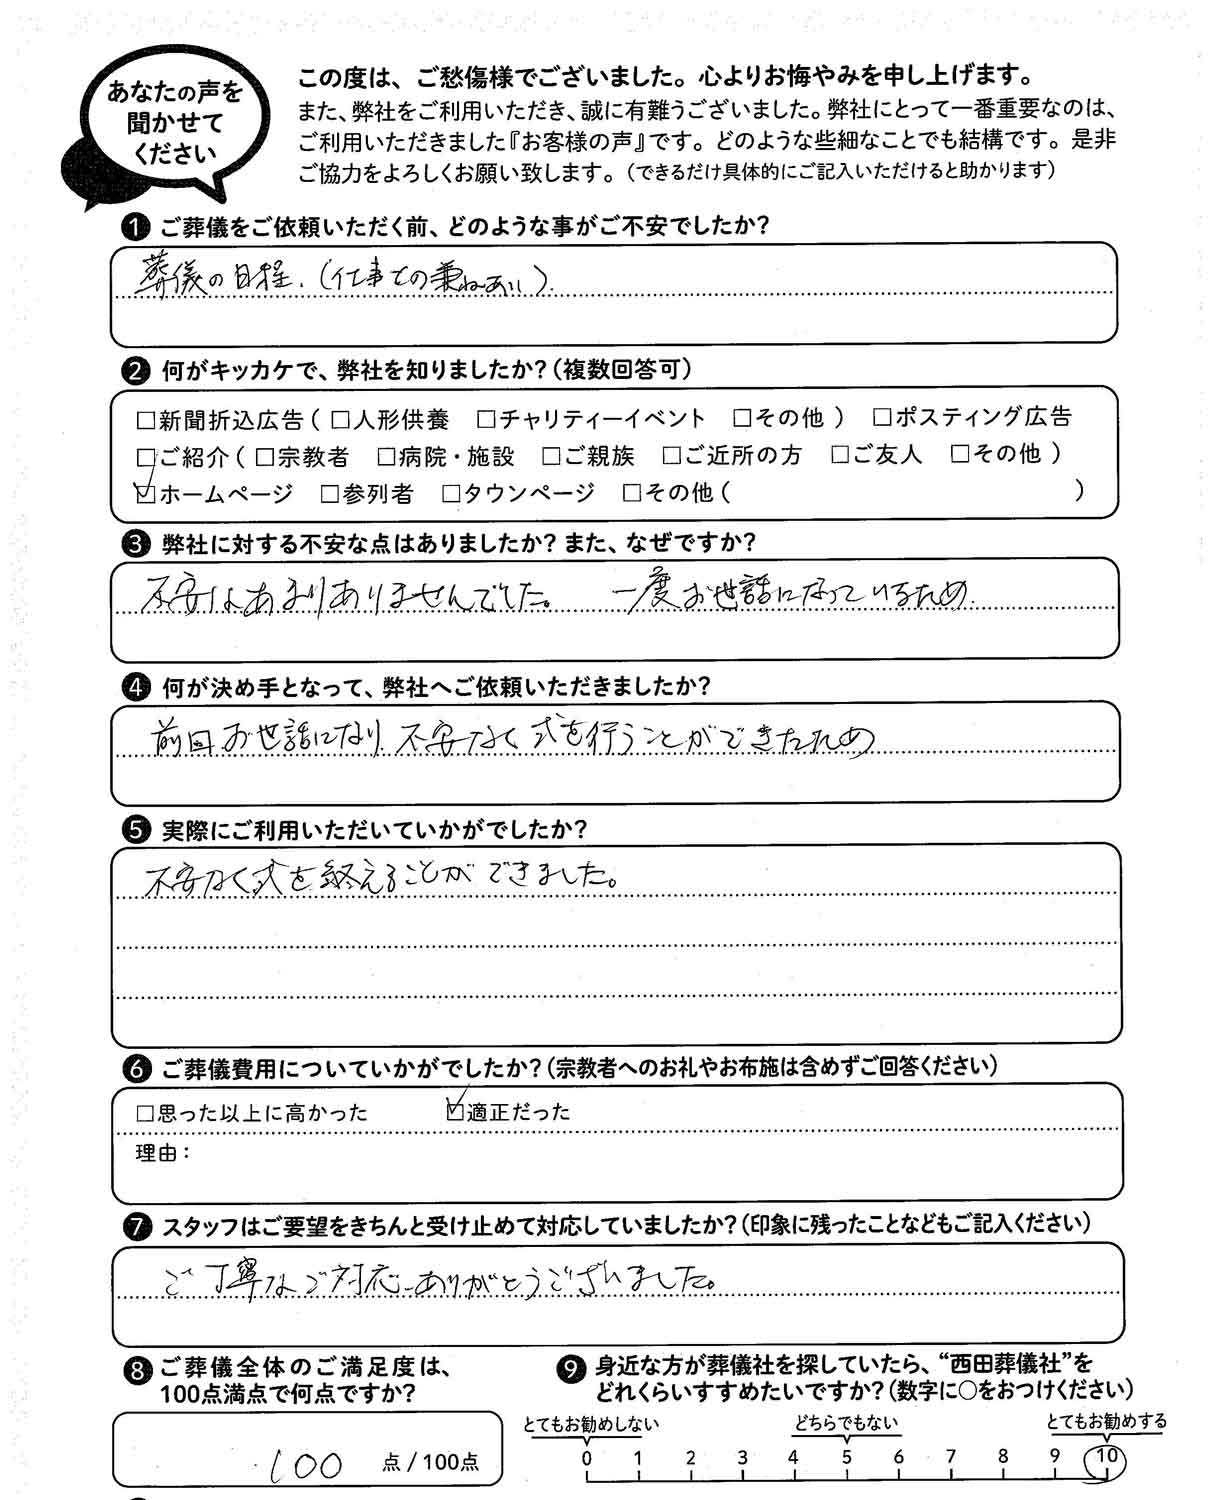 あなたの声を
聞かせて
ください
この度は、ご愁傷様でございました。心よりお悔やみを申し上げます。
また、弊社をご利用いただき、誠に有難うございました。弊社にとって一番重要なのは、
ご利用いただきました『お客様の声』です。どのような些細なことでも結構です。是非
ご協力をよろしくお願い致します。（できるだけ具体的にご記入いただけると助かります）
1 ご葬儀をご依頼いただく前、どのような事がご不安でしたか？
葬儀の日程.（仕事との兼ねあい）.
2 何がキッカケで、弊社を知りましたか？（複数回答可）
□新聞折込広告（ □人形供養 □チャリティーイベント □その他 ） □ポスティング広告
□ご紹介（ □宗教者 □病院・施設 □ご親族 □ご近所の方 □ご友人 □その他 ）
☑ホームページ □参列者 □タウンページ □その他（ ）
3 弊社に対する不安な点はありましたか？また、なぜですか？
不安はあまりありませんでした。 一度お世話になっているため.
4 何が決め手となって、弊社へご依頼いただきましたか？
前回お世話になり、不安なく式を行うことができたため
5 実際にご利用いただいていかがでしたか？
不安なく式を終えることができました。
6 ご葬儀費用についていかがでしたか？（宗教者へのお礼やお布施は含めずご回答ください）
□思った以上に高かった ☑適正だった
理由：
7 スタッフはご要望をきちんと受け止めて対応していましたか？（印象に残ったことなどもご記入ください）
ご丁寧なご対応ありがとうございました。
8 ご葬儀全体のご満足度は、
100点満点で何点ですか？
100 点 / 100点
9 身近な方が葬儀社を探していたら、“西田葬儀社”を
どれくらいすすめたいですか？（数字に○をおつけください）
とてもお勧めしない どちらでもない とてもお勧めする
0 1 2 3 4 5 6 7 8 9 10